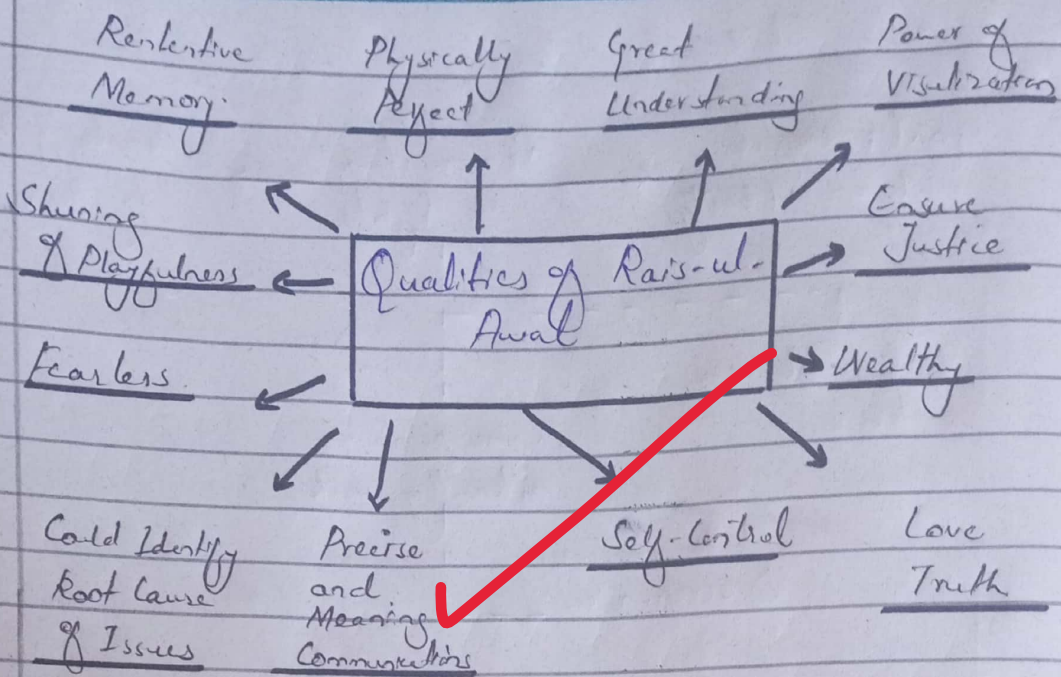 Rententive
Memory.
Physically
Perfect
Great
Understanding
Power of
Visulization
Shuning
of Playfulness
Ensure
Justice
Qualities of Rais-ul-
Awal
Fearless
Wealthy
Could Identify
Root Cause
of Issues
Precise
and
Meaning
Communications
Self-Control
Love
Truth